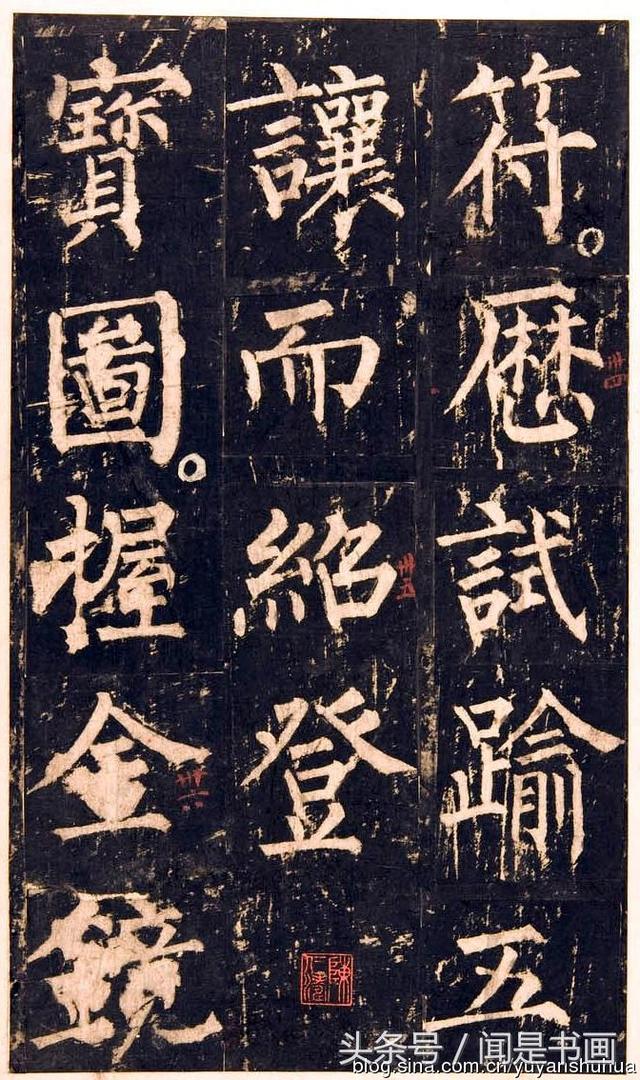 符。歷試踰五
讓而紹登
寶圖。握金鏡
卅四
卅五
卅六
头条号 / 闻是书画
blog.sina.com.cn/yuyanshuhua